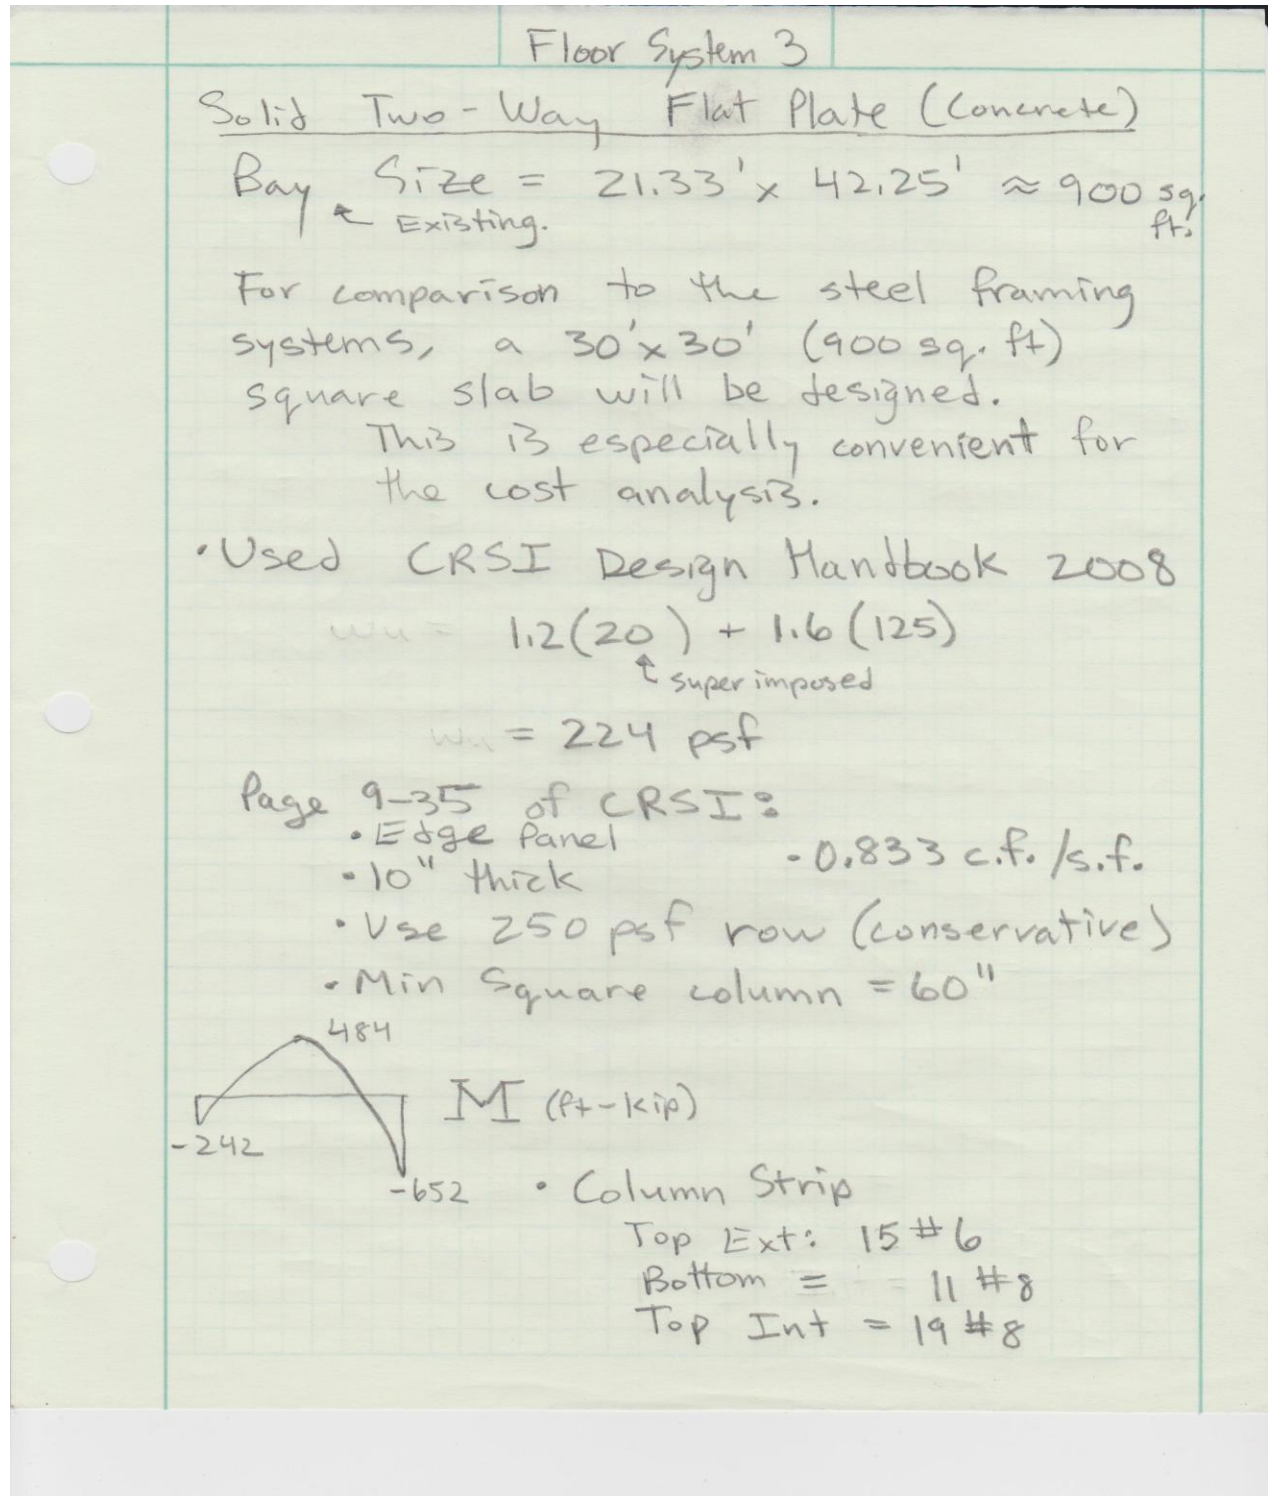 Floor System 3
Solid Two-Way Flat Plate (Concrete)
Bay Size = 21.33' x 42.25' ≈ 900 sq. ft.
↖ Existing.
For comparison to the steel framing
systems, a 30'x30' (900 sq. ft)
square slab will be designed.
This is especially convenient for
the cost analysis.
• Used CRSI Design Handbook 2008
wu = 1.2(20) + 1.6(125)
↑ superimposed
wu = 224 psf
Page 9-35 of CRSI:
• Edge Panel
- 0.833 c.f./s.f.
• 10" thick
• Use 250 psf row (conservative)
• Min Square column = 60"
484
M (ft-kip)
-242
-652
• Column Strip
Top Ext: 15 #6
Bottom = 11 #8
Top Int = 19 #8